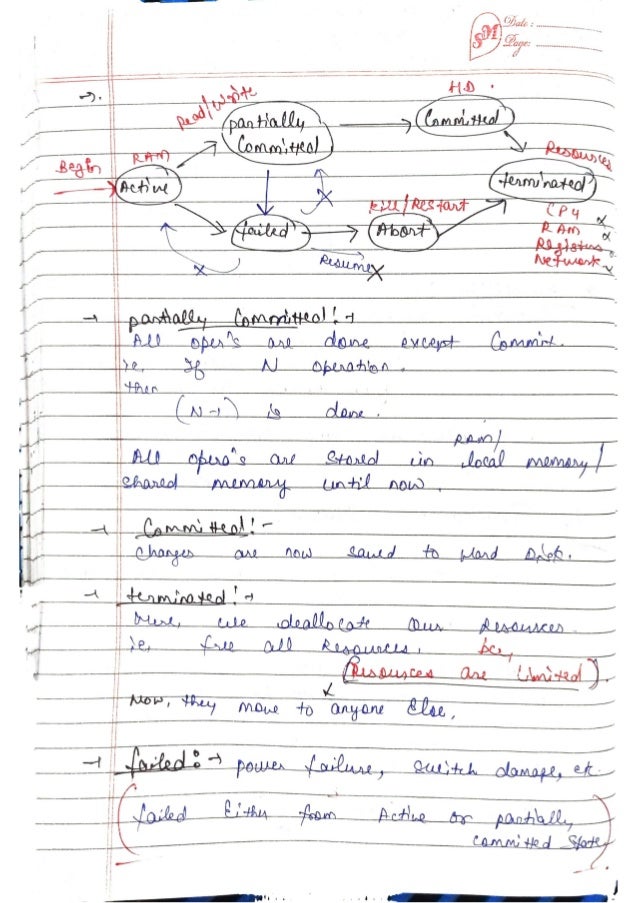 SM
Date:
Page:
Read/Write
H.D.
partially
Committed
Committed
RAM
Resources
Begin
Active
terminated
Kill/Restart
CPU x
failed
Abort
RAM x
Registers x
Network x
x
x
Resume x
→ partially Committed! →
All oper's are done except Commit.
ie, If N operation.
then
(N-1) is done.
RAM/
All opera's are stored in local memory/
shared memory until now.
→ Committed! -
Changes are now saved to Hard Disk.
→ terminated! →
here, we deallocate our resources
ie, free all resources, bcz,
(Resources are Limited).
Now, they move to x anyone Else.
→ failed: → power failure, switch damage, etc
(failed Either from Active or partially
committed State)